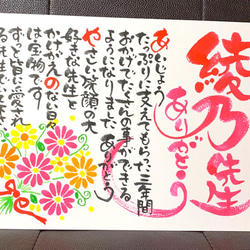 綾乃先生
ありがとう
あいじょう
たっぷりに支えてもらった三年間
おかげでたくさんの事ができる
ようになりました。ありがとう
やさしい笑顔の大
好きな先生と
かけがえのない日々
は宝物です
ずっと皆に愛され
る先生でいて